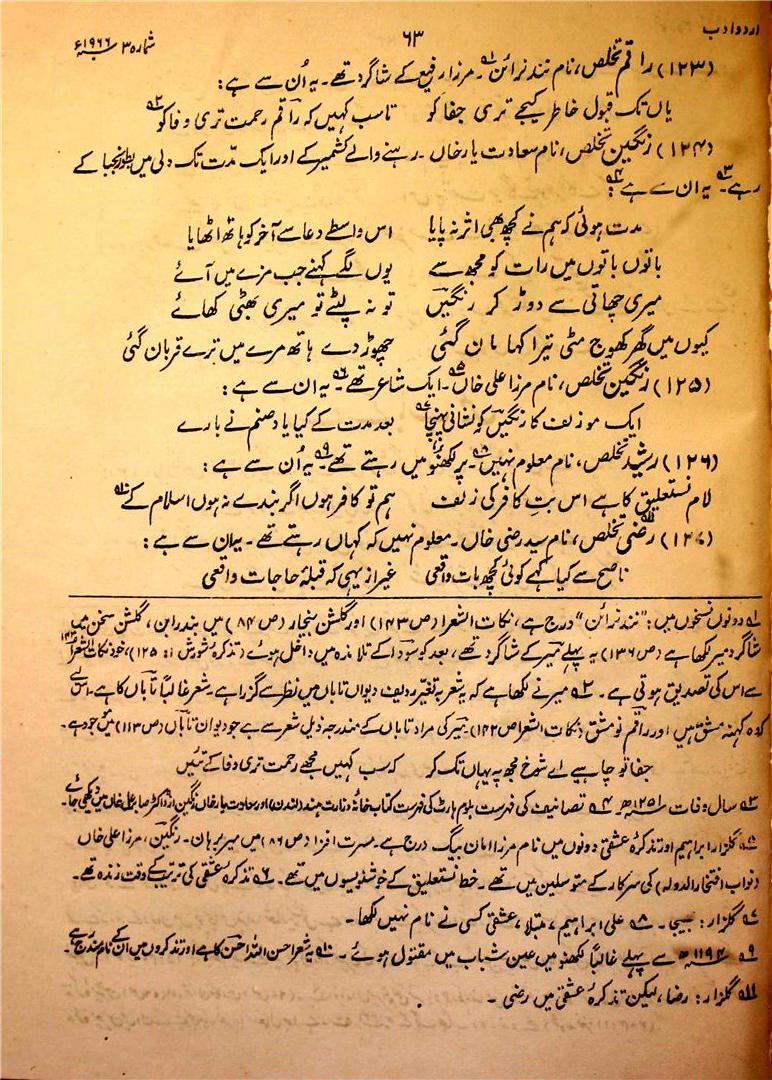 اردو ادب ۶۳ شمارہ ۳ سنہ ۱۹۶۶ء
(۱۲۳) راقم تخلص، نام نند نرائن۔ مرزا رفیع کے شاگرد تھے۔ یہ اُن سے ہے:
یاں تک قبول خاطر کیجے تری جفا کو تا سب کہیں کہ راقم رحمت تری وفا کو
(۱۲۴) رنگین تخلص، نام سعادت یار خاں۔ رہنے والے کشمیر کے اور ایک مدّت تک دلی میں بطور نجبا کے
رہے۔ یہ ان سے ہے:
مدت ہوئی کہ ہم نے کچھ بھی اثر نہ پایا اس واسطے دعا سے آخر کو ہاتھ اٹھایا
باتوں باتوں میں رات کو مجھ سے یوں لگے کہنے جب مزے میں آئے
میری چھاتی سے دوڑ کر رنگیں تو نہ لپٹے تو میری بھتی کھائے
کیوں میں گھر کھوج مٹی تیرا کہا مان گئی چھوڑ دے ہاتھ مرے میں ترے قربان گئی
(۱۲۵) رنگین تخلص، نام مرزا علی خاں۔ ایک شاعر تھے۔ یہ ان سے ہے:
ایک مو زلف کا رنگیں کو نشانی پہنچا بعد مدت کے کیا یاد صنم نے بارے
(۱۲۶) رشید تخلص، نام معلوم نہیں۔ پر لکھنؤ میں رہتے تھے۔ یہ اُن سے ہے:
لام نستعلیق کا ہے اس بتِ کافر کی زلف ہم تو کافر ہوں اگر بندے نہ ہوں اسلام کے
(۱۲۷) رضی تخلص، نام سید رضی خاں۔ معلوم نہیں کہ کہاں رہتے تھے۔ یہ ان سے ہے:
ناصح سے کیا کہے کوئی کچھ بات واقعی غیر از یہی کہ قبلۂ حاجات واقعی
۱؎ دونوں نسخوں میں: "نند نرائن" درج ہے، نکات الشعرا (ص ۱۴۳) اور گلشن بیخار (ص ۸۴) میں بندرابن، گلشن سخن میں
شاگرد میر لکھا ہے (ص ۱۳۶) یہ پہلے میر کے شاگرد تھے، بعد کو سودا کے تلامذہ میں داخل ہوئے (تذکرۂ شورش ۱: ۱۲۵)، خود نکات الشعرا ۱۴۳
سے اس کی تصدیق ہوتی ہے۔ ۲؎ میر نے لکھا ہے کہ یہ شعر بہ تغیر ردیف دیوان تاباں میں نظر سے گزرا ہے۔ شعر غالباً تاباں کا ہے۔ اس لیے
کہ وہ کہنہ مشق ہیں اور راقم نو مشق (نکات الشعرا ص ۱۴۲)۔ میر کی مراد تاباں کے مندرجہ ذیل شعر سے ہے جو دیوان تاباں (ص ۱۱۳) میں موجود ہے۔
جفا تو چاہیے اے شوخ مجھ پہ یہاں تک کر کہ سب کہیں مجھے رحمت تری وفا کے تئیں
۳؎ سال وفات ۱۲۵۱ھ ۴؎ تصانیف کی فہرست بلوم ہارٹ کی فہرست کتاب خانۂ وزارت ہند (لندن) اور سعادت یار خاں رنگین از ڈاکٹر صابر علی خاں میں دیکھی جائے
۵؎ گلزار ابراہیم اور تذکرۂ عشقی دونوں میں نام مرزا امان بیگ درج ہے۔ مسرت افزا (ص ۸۶) میں میر برہان۔ رنگین، مرزا علی خاں
(نواب افتخار الدولہ) کی سرکار کے متوسلین میں تھے۔ خط نستعلیق کے خوشنویسوں میں تھے۔ ۶؎ تذکرۂ عشقی کی ترتیب کے وقت زندہ تھے۔
۷؎ گلزار: بھیجی۔ ۸؎ علی ابراہیم، مبتلا، عشقی کسی نے نام نہیں لکھا۔
۹؎ سنہ ۱۱۹۴ھ سے پہلے غالباً لکھنؤ میں عین شباب میں مقتول ہوئے۔ ۱۰؎ یہ شعر احسن اللہ احسن کا ہے اور تذکروں میں ان کے نام مندرج ہے۔
۱۱؎ گلزار: رضا، لیکن تذکرۂ عشقی میں رضی۔